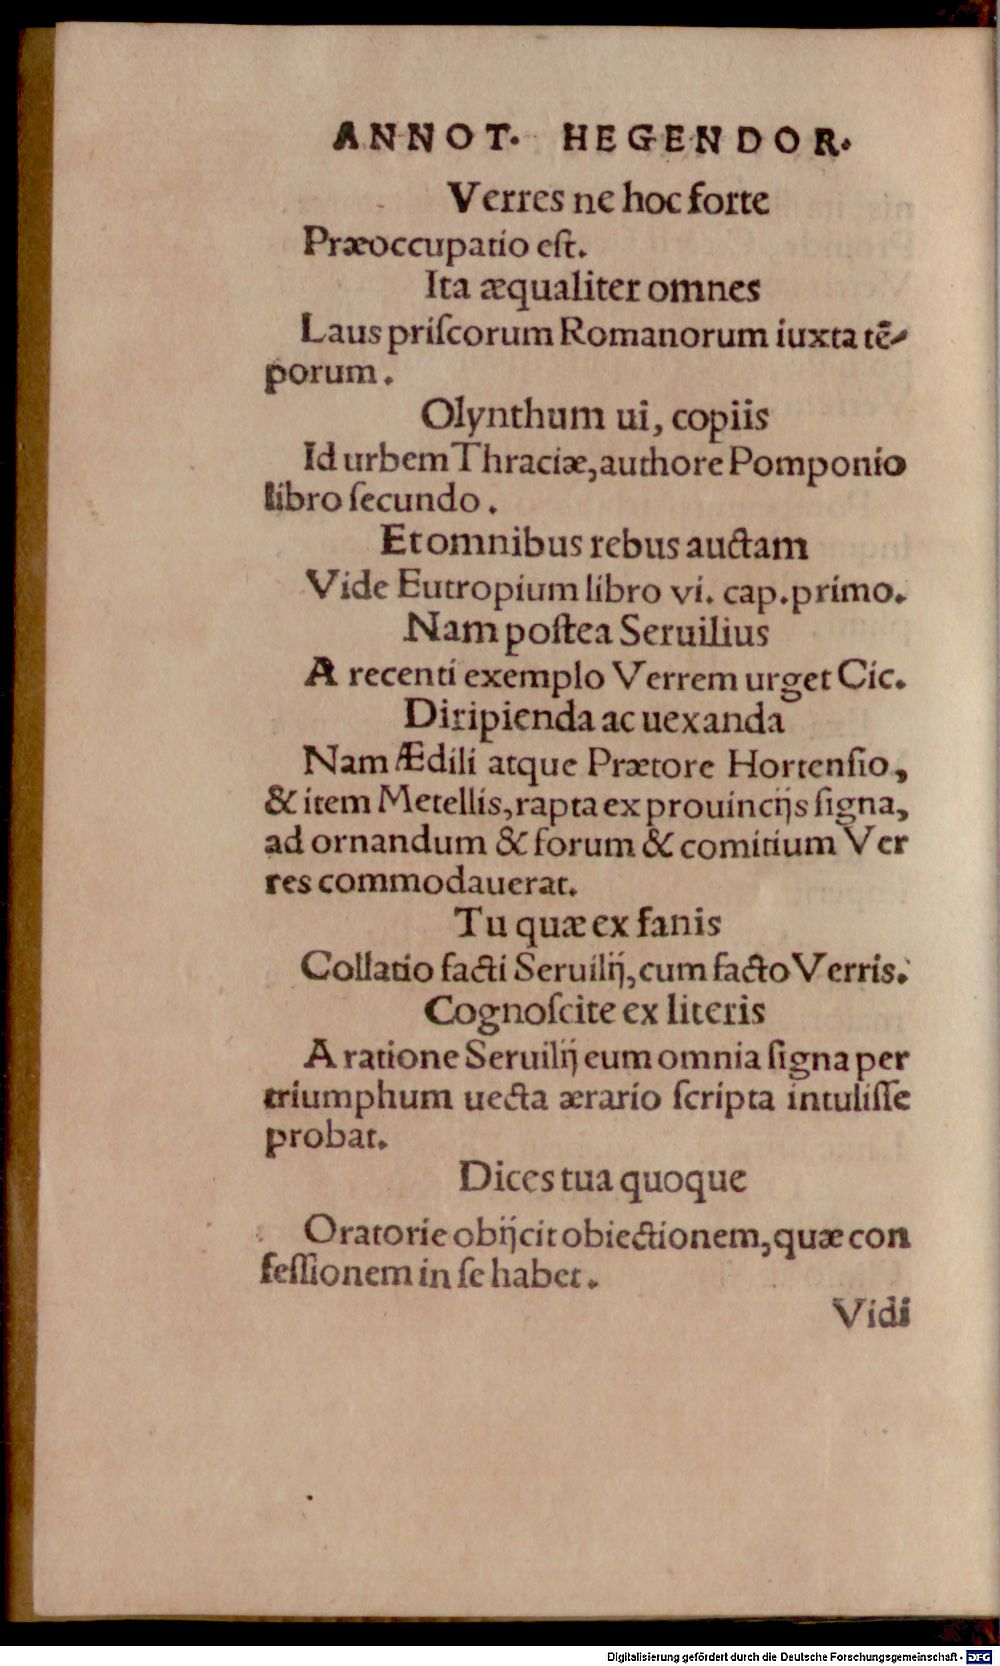 ANNOT. HEGENDOR.
Verres ne hoc forte
Præoccupatio est.
Ita æqualiter omnes
Laus priſcorum Romanorum iuxta tē-
porum.
Olynthum ui, copiis
Id urbem Thraciæ, authore Pomponio
libro ſecundo.
Et omnibus rebus auctam
Vide Eutropium libro vi. cap. primo.
Nam poſtea Seruilius
A recenti exemplo Verrem urget Cic.
Diripienda ac uexanda
Nam Ædili atque Prætore Hortenſio,
& item Metellis, rapta ex prouincijs ſigna,
ad ornandum & forum & comitium Ver
res commodauerat.
Tu quæ ex fanis
Collatio facti Seruilij, cum facto Verris.
Cognoſcite ex literis
A ratione Seruilij eum omnia ſigna per
triumphum uecta ærario ſcripta intuliſſe
probat.
Dices tua quoque
Oratorie obijcit obiectionem, quæ con
feſſionem in ſe habet.
Vidi
Digitalisierung gefördert durch die Deutsche Forschungsgemeinschaft - DFG